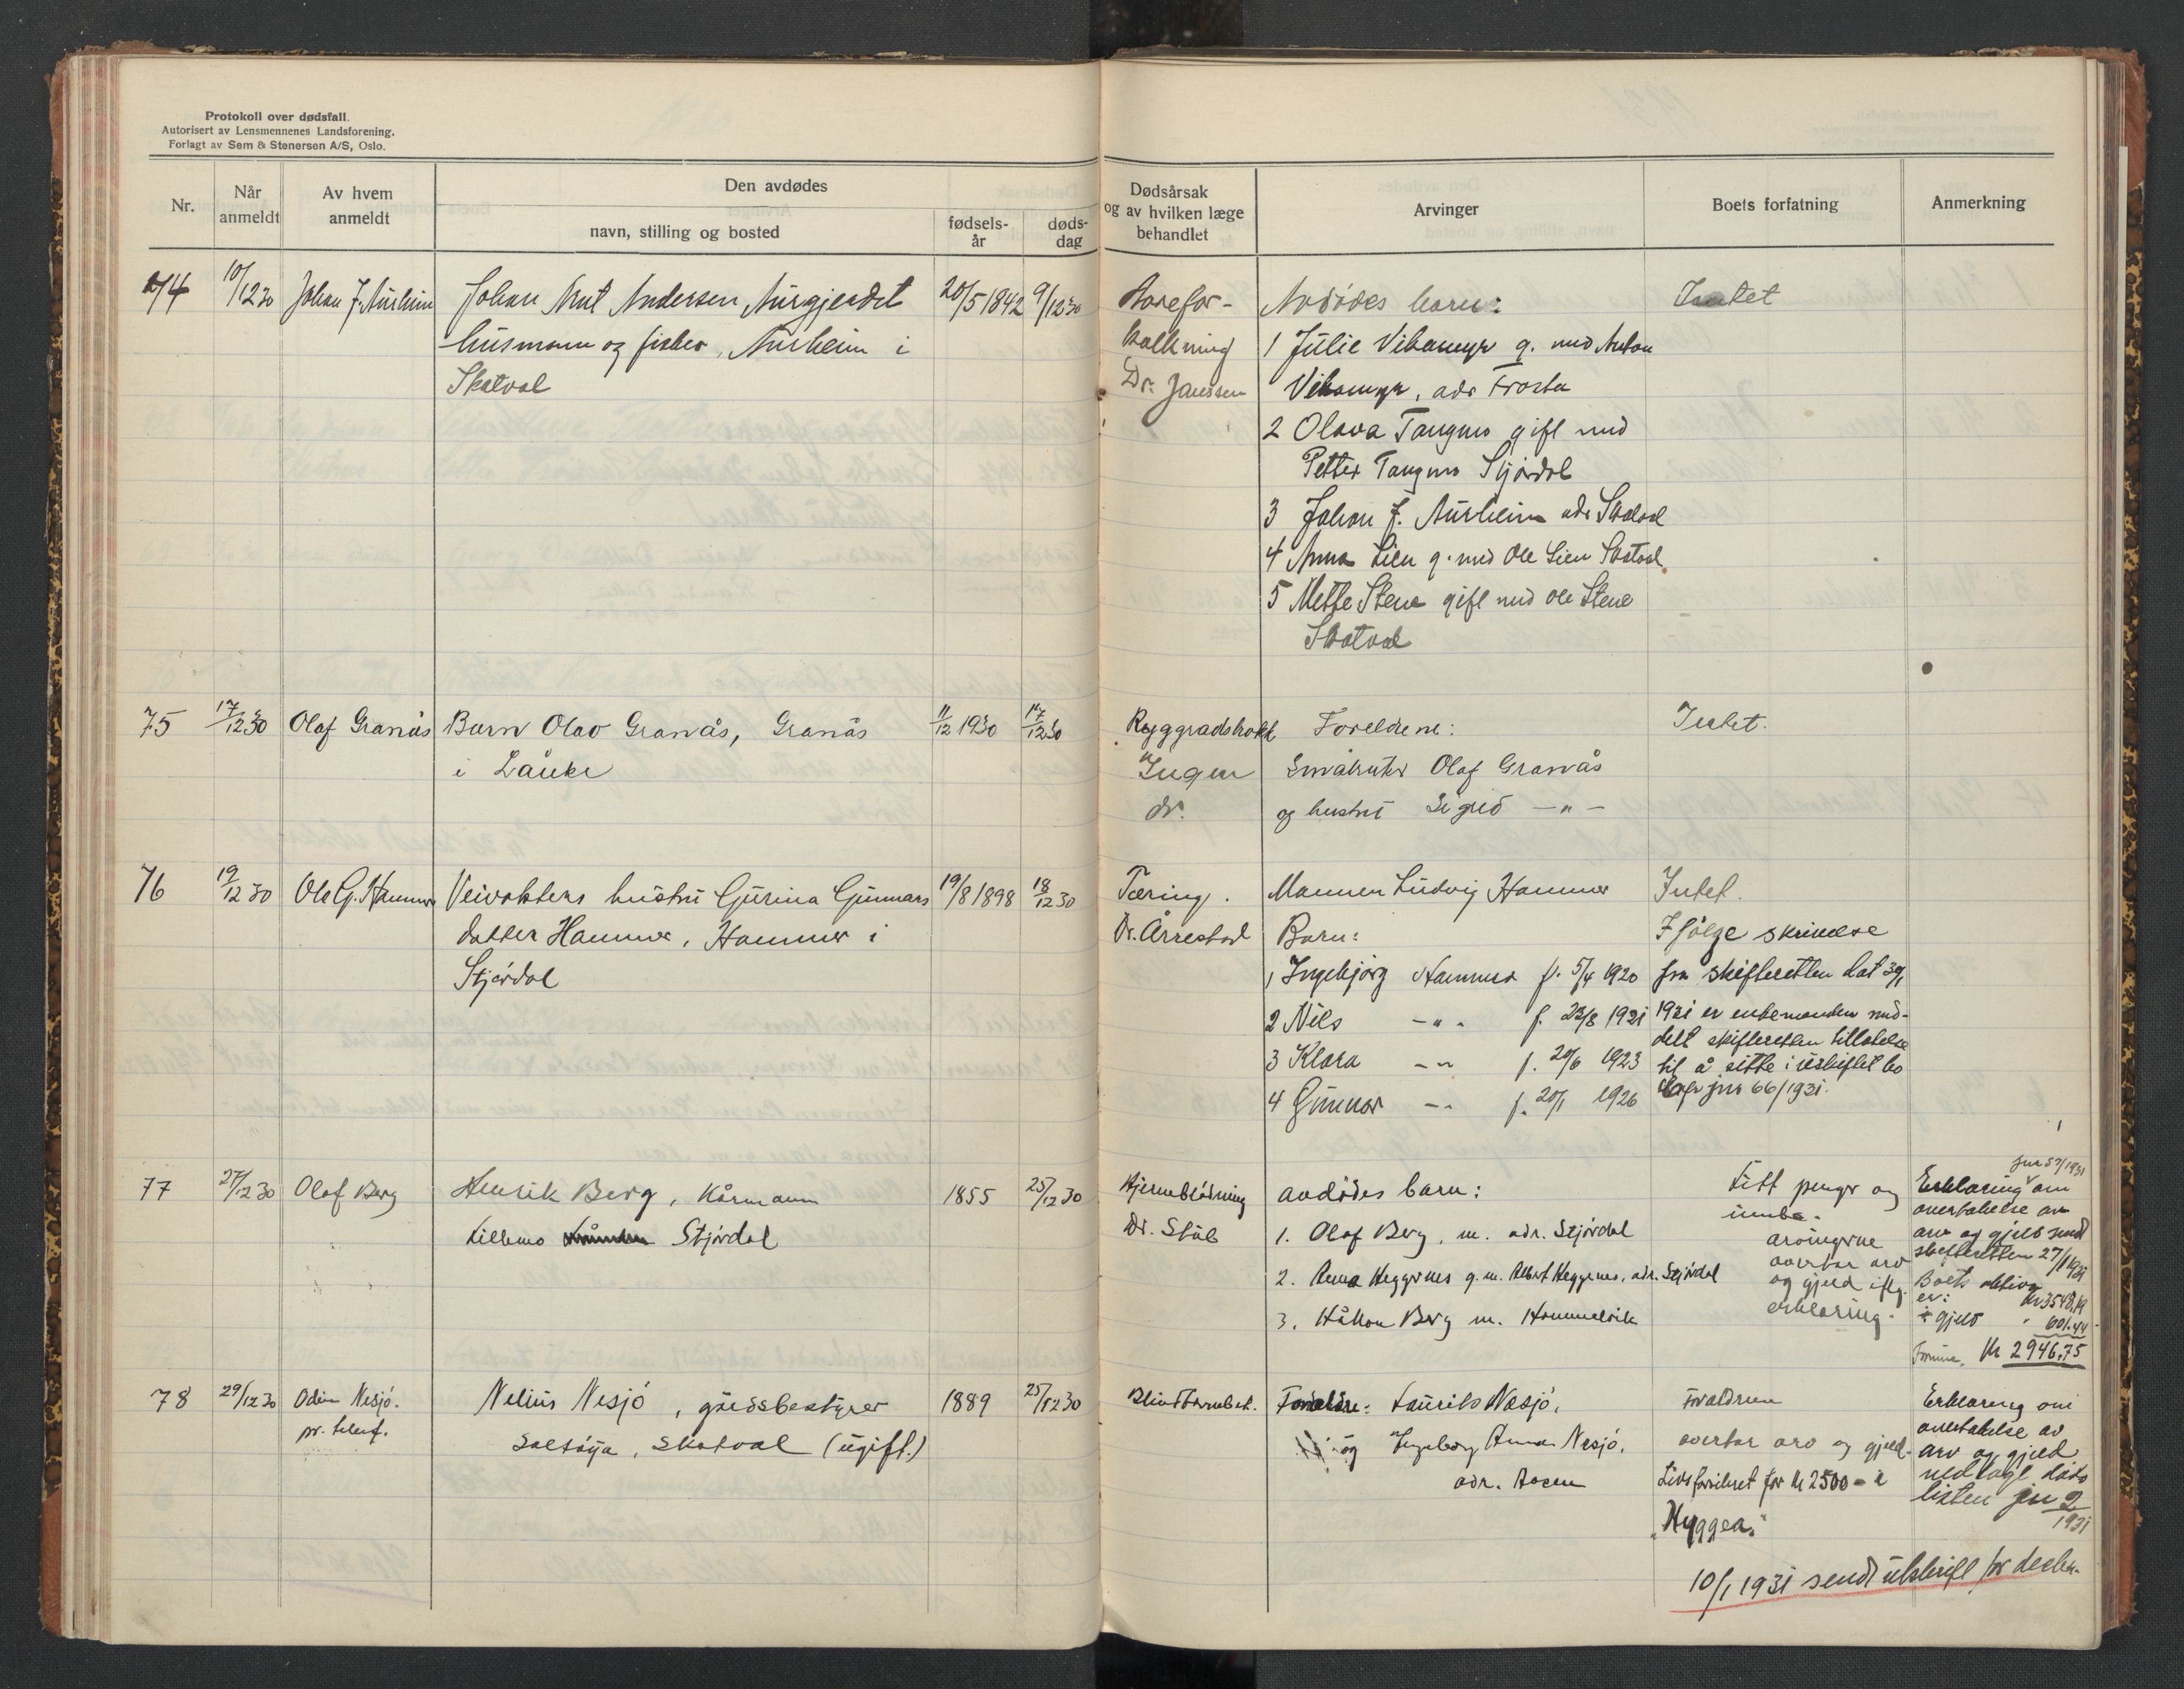 Protokoll over dødsfall.
Autorisert av Lensmennenes Landsforening.
Forlagt av Sem & Stenersen A/S, Oslo.
Nr.
Når anmeldt
Av hvem anmeldt
Den avdødes
navn, stilling og bosted
fødsels-
år
døds-
dag
Dødsårsak
og av hvilken læge
behandlet
Arvinger
Boets forfatning
Anmerkning
74 10/12 30 Johan J. Aurheim Johan Arnt Andersen Aurgjerdet 20/5 1842 9/12 30
husmann og fisker, Aurheim i
Skatval
Aarefor-
kalkning
Dr. Janssen
Avdødes barn:
1 Julie Vikamyr g. med Anton
Vikamyr, adr Frosta
2 Olava Tangmo gift med
Petter Tangmo Stjørdal
3 Johan J. Aurheim adr Skatval
4 Anna Lien g. med Ole Lien Skatval
5 Mette Stene gift med Ole Stene
Skatval
Intet
75 17/12 30 Olaf Granås Barn Olav Granås, Granås 11/12 1930 17/12 30
i Lånke
Ryggradsbrokk
Ingen
dr.
Foreldrene:
Småbruker Olaf Granås
og hustru Sigrid — " —
Intet.
76 19/12 30 Ole G. Hammer Veivokters hustru Gurina Gunnars 19/8 1898 18/12 30
datter Hammer, Hammer i
Stjørdal
Tæring.
Dr. Årrestad
Mannen Ludvig Hammer
Barn:
1 Ingebjørg Hammer f. 5/4 1920
2 Nils — " — f. 23/8 1921
3 Klara — " — f. 20/6 1923
4 Gunnar — " — f. 20/1 1926
Intet.
Ifølge skrivelse
fra skifteretten dat 30/1
1931 er enkemanden med-
delt skifterettens tillatelse
til å sitte i uskiftet bo
jnr 66/1931.
77 27/12 30 Olaf Berg Henrik Berg, kårmann 1855 25/12 30
Lillemo Stjørdal
Hjerneblødning
Dr. Stüb
avdødes barn:
1. Olaf Berg, m. adr. Stjørdal
2. Anna Heggnes g. m. Albert Heggnes, adr. Stjørdal
3. Håkon Berg m. Hommelvik
Litt penger og
innbo.
arvingerne
overtar arv
og gjeld iflg.
erklæring.
jnr 57/1931
Erklæring om
overtakelse av
arv og gjeld sendt
skifteretten 27/1 1931
Boets aktiva
er: Kr 3548,19
÷ gjeld " 601.44
Formue. Kr 2946.75
78 29/12 30 Odin Nesjø. Nelius Nesjø, gårdsbestyrer 1889 25/12 30
pr. telef.
Saltøya, Skatval (ugift.)
Blindtarmbet.
Foreldre: Laurits Nesjø,
og Ingeborg Anna Nesjø,
adr. Aasen
Foreldrene
overtar arv og gjeld.
Livsforsikret for kr 2500 - i
"Hyggea."
Erklæring om
overtakelse av
arv og gjeld
vedlagt døds
listen jnr 2
1931
10/1 1931 sendt utskrift for decbr.